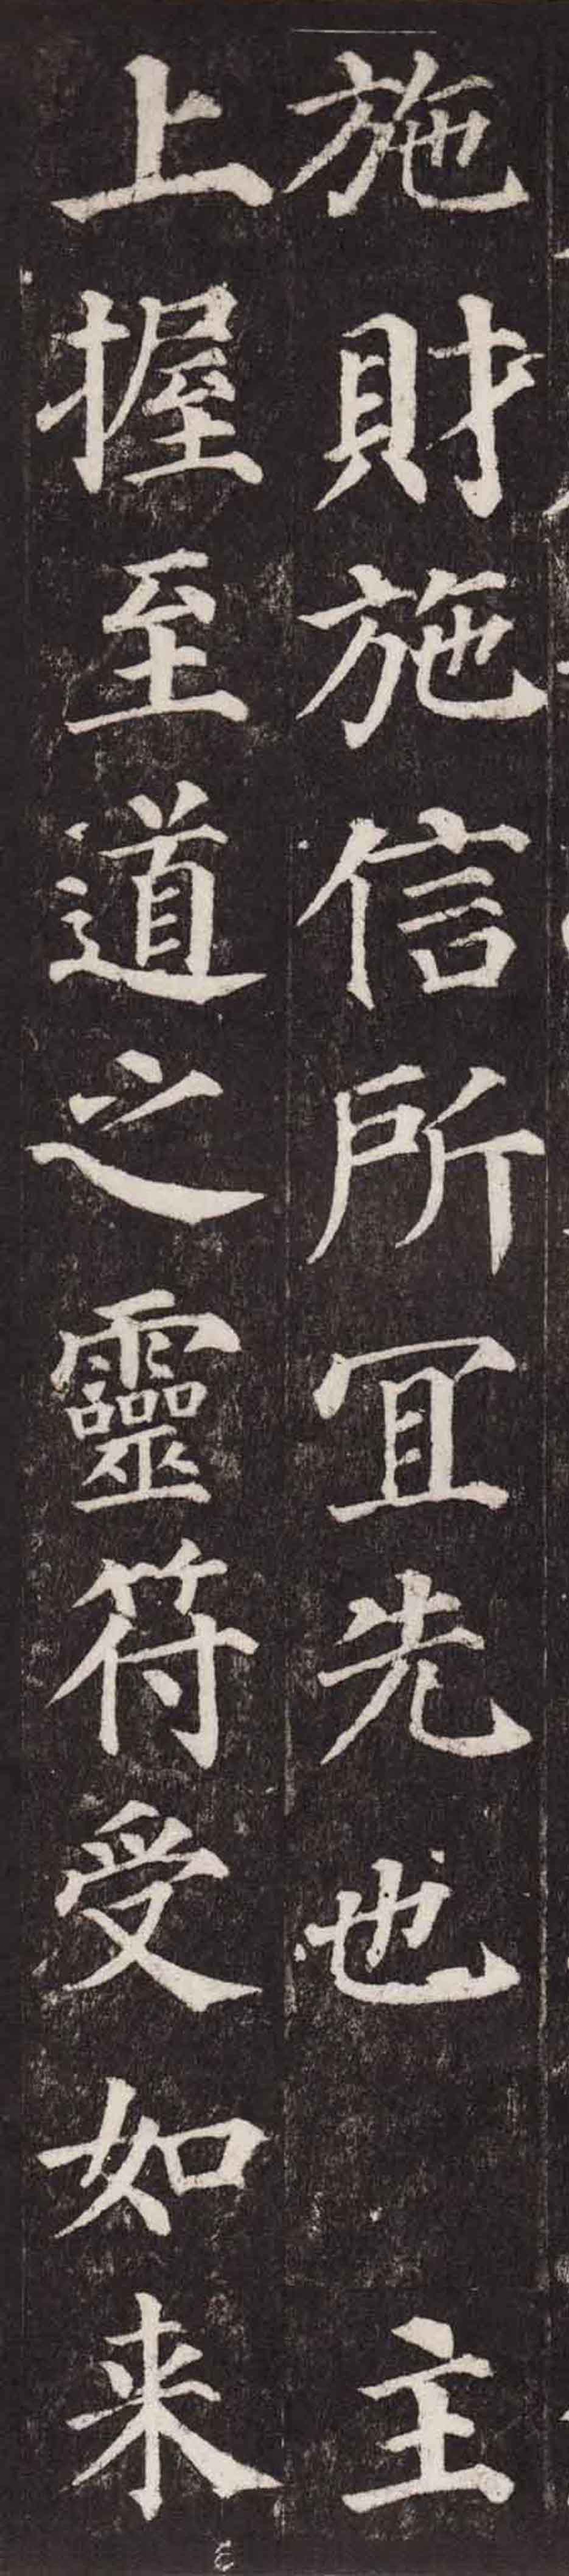 施財施信所冝先也 主
上握至道之靈符受如来